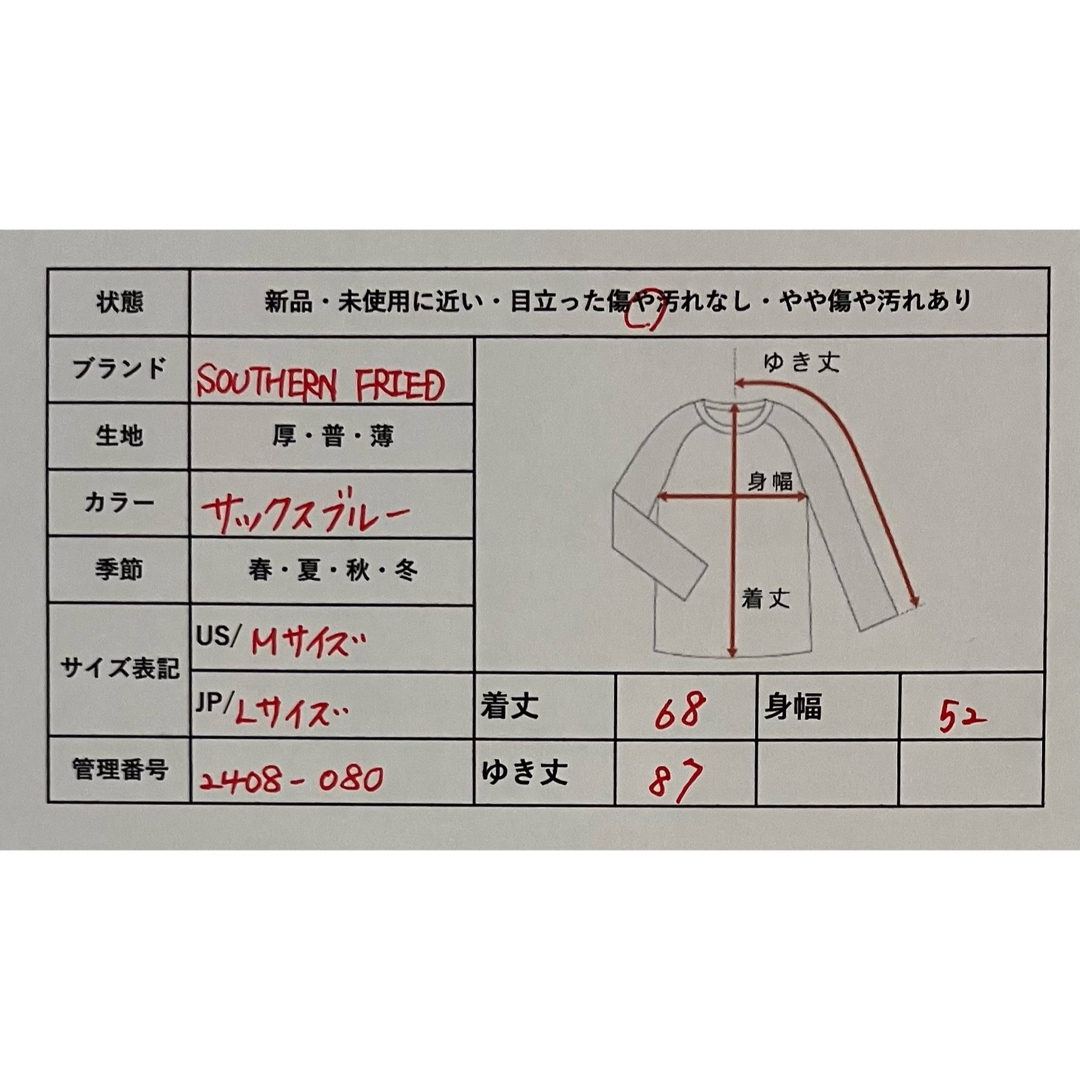 状態 新品・未使用に近い・目立った傷や汚れなし・やや傷や汚れあり
ブランド SOUTHERN FRIED
生地 厚・普・薄
カラー サックスブルー
季節 春・夏・秋・冬
サイズ表記 US/ Mサイズ
JP/Lサイズ
管理番号 2408-080
ゆき丈
身幅
着丈
着丈 68 身幅 52
ゆき丈 87